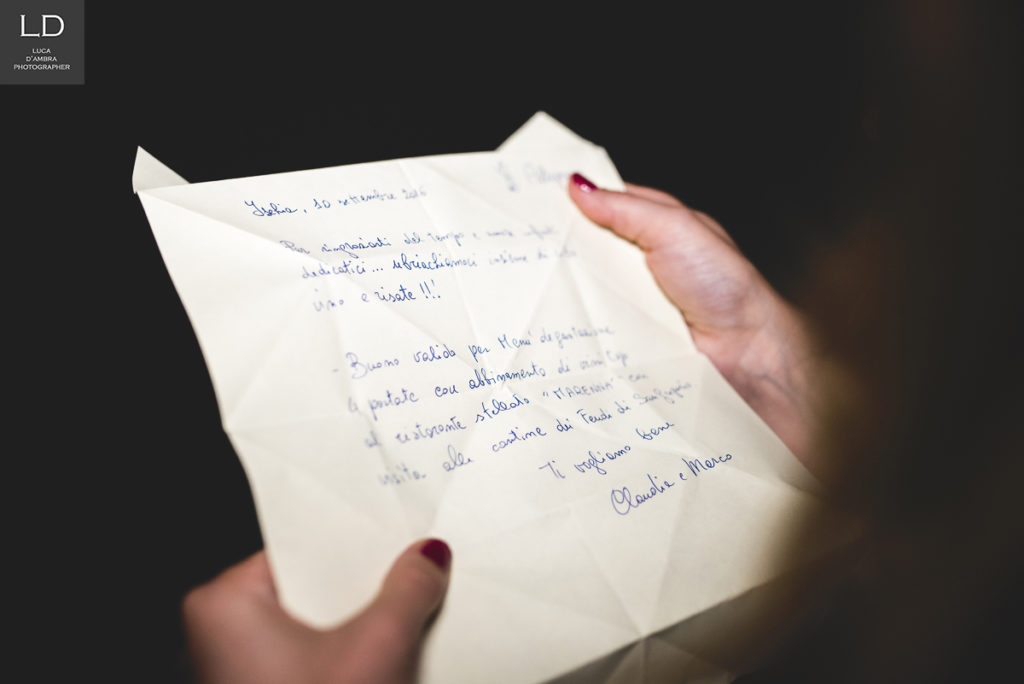 LD
LUCA
D'AMBRA
PHOTOGRAPHER
Ischia, 10 settembre 2016
Per ringraziarti del tempo e
dedicatici... ubriachiamoci insieme di
vino e risate!!!
- Buono valido per Menù degustazione
4 portate con abbinamento di vini top
al ristorante stellato "MARENNÀ" con
visita alle cantine dei Feudi di San Gregorio
Ti vogliamo bene
Claudia e Marco